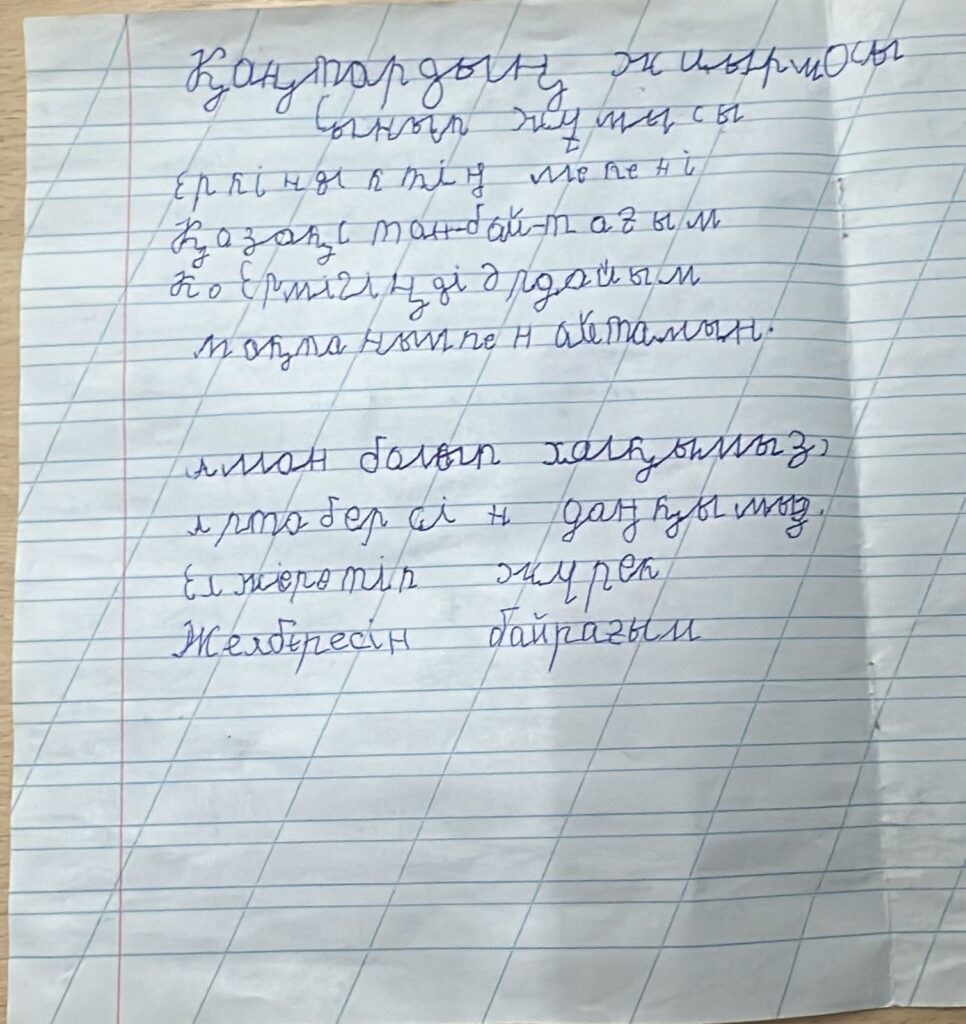 Қаңтардың жиырмасы
Сынып жұмысы
Еркіндіктің мекені
Қазақстан-бай-тағым
Көсемігіңді әрдайым
мақтанышпен айтамын.
Аман болып халқымыз,
Арта берсін даңқымыз.
Ел жеретін жүрек
Желбіресін байрағым